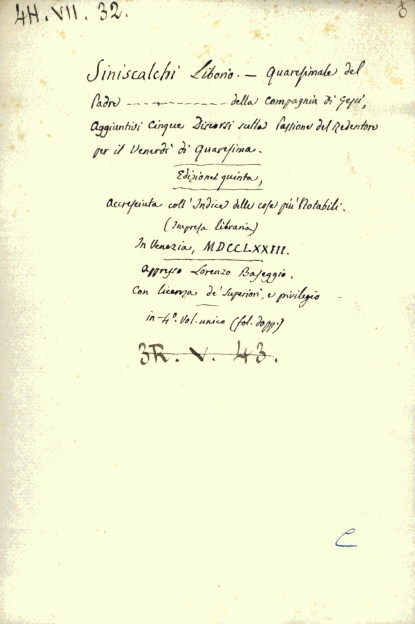 4H. VII. 32.
Siniscalchi Liborio. — Quaresimale del
Padre ------------ della Compagnia di Gesù,
Aggiuntivi Cinque Discorsi sulla Passione del Redentore
per il Venerdì di Quaresima.
Edizione quinta,
Accresciuta coll' Indice delle cose più Notabili.
(Impresa libraria)
In Venezia, MDCCLXXIII.
Appresso Lorenzo Baseggio.
Con licenza de' Superiori, e privilegio
in-4º. Vol. unico (fol. dopp.)
3R. V. 43.
C